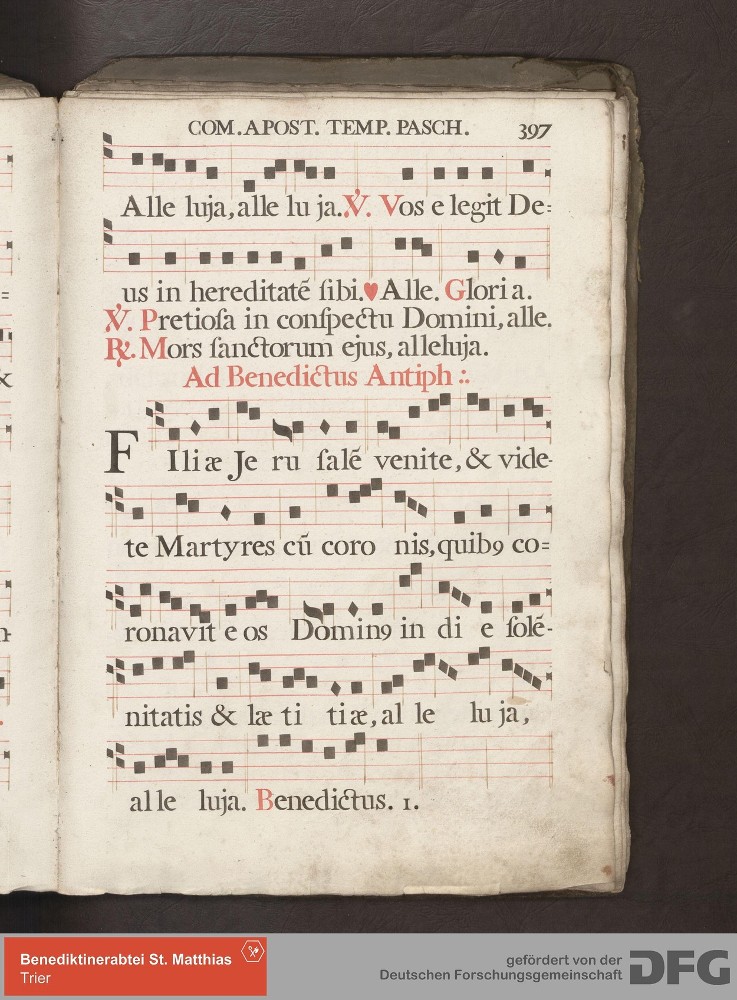 COM. APOST. TEMP. PASCH. 397
Alle luja, alle lu ja. ℣. Vos e legit De=
us in hereditatē ſibi. ♥ Alle. Glori a.
℣. Pretioſa in conſpectu Domini, alle.
℟. Mors ſanctorum ejus, alleluja.
Ad Benedictus Antiph :.
F Iliæ Je ru ſalē venite, & vide-
te Martyres cū coro nis, quibꝯ co=
ronavit e os Dominꝯ in di e ſolē-
nitatis & læ ti tiæ, al le lu ja,
al le luja. Benedictus. 1.
=
&
n-
Benediktinerabtei St. Matthias
Trier
gefördert von der
Deutschen Forschungsgemeinschaft
DFG